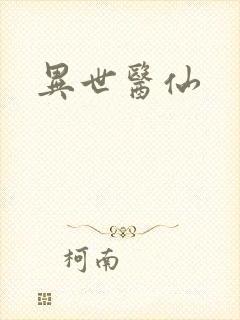 異世醫仙
柯南